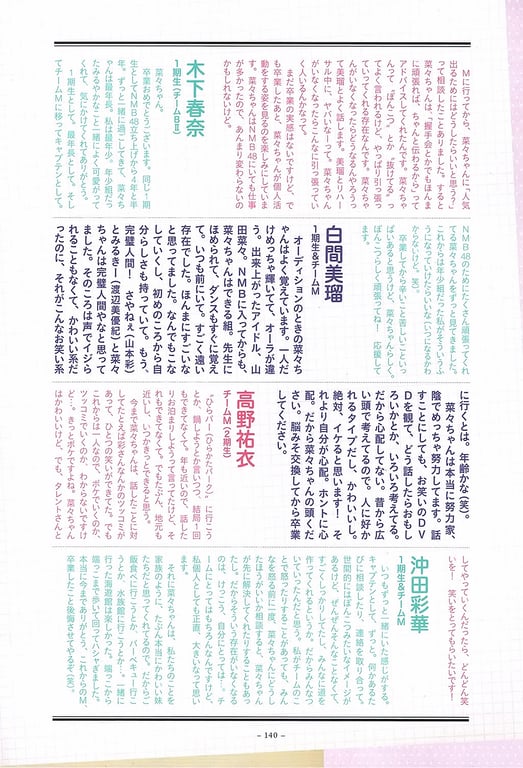 Mに行ってから、菜々ちゃんに、「人気
出るためにはどうしたらいいと思う？」
って相談したことありました。すると
菜々ちゃんは、「握手会とかでもほんま
に頑張れば、ちゃんと伝わるから」って
アドバイスしてくれたんです。菜々ちゃ
んって〝ぽんこつ〟とか〝抜けてる〟っ
てよく言われるけど、やっぱり引っ張っ
ていってくれる存在なんです。菜々ちゃ
んがいなくなったらどうなるんやろうっ
て美瑠とよく話します。美瑠とリハー
サル中に、ヤバいなーって。菜々ちゃん
がいなくなったらこんなに引っ張ってい
く人いるんかなって。
　まだ卒業の実感はないですけど、で
も卒業したあと、菜々ちゃんが個人活
動をする姿を見るのを楽しみにしていま
す。菜々ちゃんはNMB48にいても仕事
が多かったので、あんまり変わらないの
かもしれないけど。
木下春奈
1期生（チームBⅡ）
　菜々ちゃん。
　卒業おめでとうございます。同じ1期
生としてNMB48立ち上げから4年と半
年。ずっと一緒に過ごしてきて、菜々ち
ゃんは最年長、私は最年少。年少組だっ
たみるるんやななこと一緒によく可愛がって
くれて、気にかけてくれてありがとう。
　1期生として。最年長として。そし
てチームMに移ってキャプテンとして。
NMB48のためにたくさん頑張ってくれ
てる菜々ちゃんをずっと見てきました。
これからは年少組だった私がそういうふ
うになっていけたらいいな（いつになるかわ
からないけど、笑）。
　卒業してから辛いこと苦しいこといっ
ぱいあると思うけど、菜々ちゃんらしく。
ぽんこつらしく頑張ってね！　応援して
ます。
白間美瑠
1期生&チームM
　オーディションのときの菜々ち
ゃんはよく覚えています。一人だ
けめっちゃ輝いてて、オーラが違
う。出来上がったアイドル、山
田菜々。NMBに入ってからも、
菜々ちゃんはできる組。先生に
ほめられて、ダンスもすぐに覚え
て。いつも前にいて。すごく遠い
存在でした。ほんまにすごいな
と思ってました。なんでもこな
していくし、初めのころから自
分らしさも持っていて。もう、
完璧人間！　さやねぇ（山本彩）
とみるきー（渡辺美優紀）と菜々
ちゃんは完璧人間やなと思って
ました。そのころは声でイジら
れることもなくて、かわいい系だ
ったのに、それがこんなお笑い系
に行くとは。年齢かな（笑）。
　菜々ちゃんは本当に努力家、
陰でめっちゃ努力してます。話
すことにしても、お笑いのDV
Dを観て、どう話したらおもし
ろいかとか、いろいろ考えてる。
だから心配してない。昔から広
い頭で考えてるので。人に好か
れるタイプだし、かわいいし。
絶対、イケると思います！　そ
れより自分が心配。ホントに心
配。だから菜々ちゃんの頭くだ
さい。脳みそ交換してから卒業
してください。
高野祐衣
チームM（2期生）
　「ひらパー（ひらかたパーク）に行こう
とか、鍋しようとか言いつつ、結局1回
もできてなくて。年も近いので、話した
りお泊まりしようって言ってたけど、そ
れもできてなくて。でもたぶん、地元も
近いし、いつかきっとできると思う。
　今まで菜々ちゃんは、話したことに対
してたとえば彩さんなんかのツッコミが
あって、ひとつの笑いができてた。でも
これからは一人なので、ボケていくのか、
ツッコミでいくのか、わからないですけ
ど。きっとボケですよね。菜々ちゃん
はかわいいけど、でも、タレントさんと
してやっていくんだったら、どんどん笑
いを！　笑いをとってもらいたいです！
沖田彩華
1期生&チームM
　いつもずっと一緒にいた感じがする。
キャプテンとして、ずっと。何かあるた
びに相談したり、連絡を取り合って。
世間的にはぽんこつみたいなイメージが
あるけど、ぜんぜんそんなことなくて、
すごくしっかりとしてて、みんなに道を
作ってくれるというか。だからみんなつ
いていったんだと思う。私がチームのこ
とで怒ったりすることがあっても、みん
なを怒る前に一度、菜々ちゃんにどうし
たほうがいいか相談すると、菜々ちゃん
が先に解決してくれたりすることもあっ
たし。だからそういう存在がいなくなる
のは、けっこう、自分にとっては…。チ
ームにとってはもちろんなんですけど、
私個人としても正直、大きいなって思い
ます。
　それに菜々ちゃんは、私たちのことを
家族のように、たぶん本当にかわいい妹
たちだと思ってくれてるので。だからご
飯食べに行こうとか、バーベキュー行こ
うとか、水族館に行こうとか…。一緒に
行った海遊館は楽しかった。端っこから
端っこまで歩いて回ってハシャぎました。
本当に今までありがとう。これからのM、
卒業したこと後悔させてやるぞ（笑）。
– 140 –